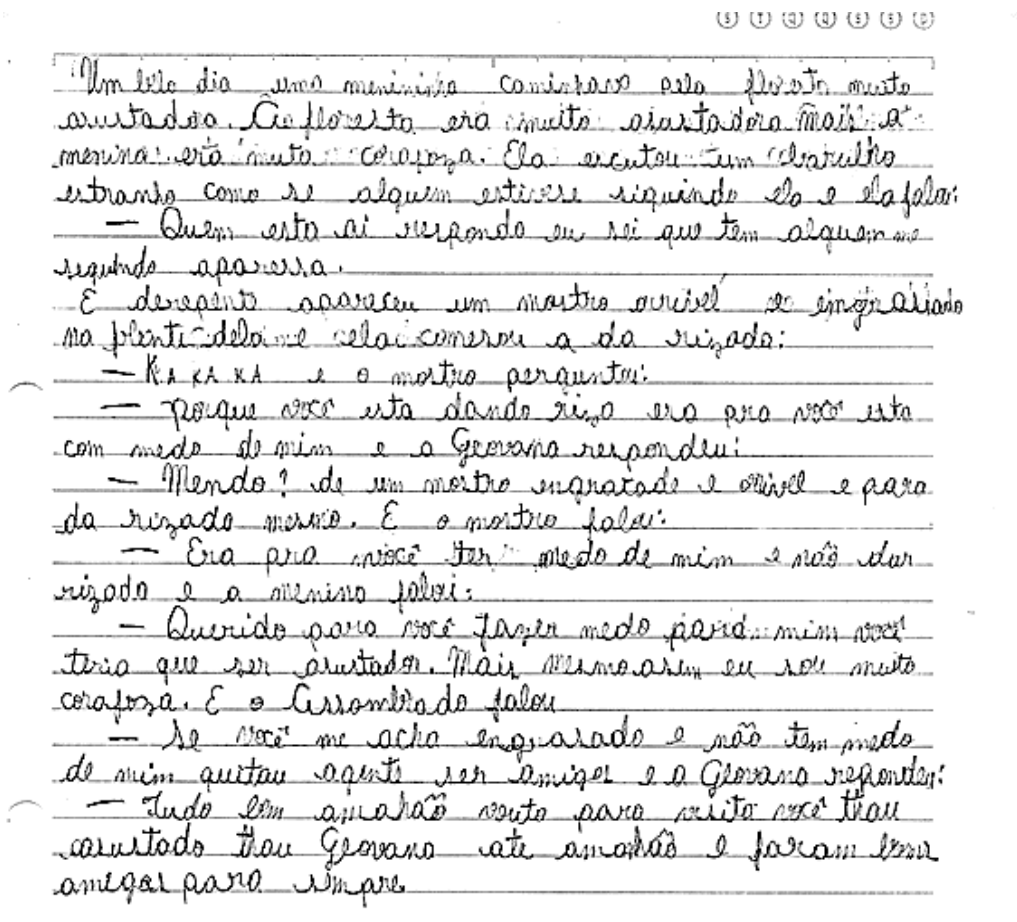 S T Q Q S S D
Um belo dia uma menininha caminhava pela floresta muito
asustadora. A floresta era muito asustadora mais a
menina era muto corajoza. Ela escutou um barulho
estranho como se alguem estivese siguindo ela e ela falou:
— Quem esta ai responda eu sei que tem alguem me
seguindo aparessa.
E derepente apareceu um mostro orrivel e engrasado
na frente dela e ela comesou a da rizada:
— KA KA KA e o mostro perguntou:
— porque você esta dando rizo era pra você esta
com medo de mim e a Geovana respondeu:
— Mendo? de um mostro engracado e orivel e para
da rizada mesmo. E o mostro falou:
— Era pra você ter medo de mim e não dar
rizada e a menina falou:
— Querido para você fazer medo para mim você
teria que ser asustador. Mais mesmo asim eu sou muito
corajoza. E o Assombrado falou
— Se você me acha engrasado e não tem medo
de mim quitau agente ser amigos e a Geovana repondeu:
— Tudo bem amanhaõ vouto para visita você thau
asustado thau Geovana ate amanhã e foram bons
amigos para simpre